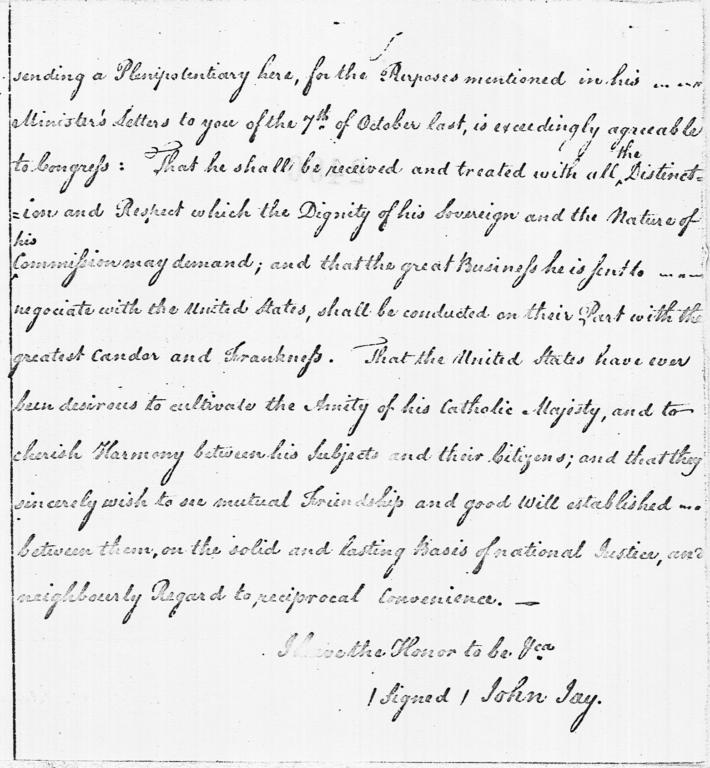 sending a Plenipotentiary here, for the Purposes mentioned in his
Minister's Letters to you of the 7th of October last, is exceedingly agreeable
to Congress: That he shall be received and treated with all the Distinct=
=ion and Respect which the Dignity of his Sovereign and the Nature of
his
Commission may demand; and that the great Business he is sent to
negociate with the United States, shall be conducted on their Part with the
greatest Candor and Frankness. That the United States have ever
been desirous to cultivate the Amity of his Catholic Majesty, and to
cherish Harmony between his Subjects and their Citizens; and that they
sincerely wish to see mutual Friendship and good Will established
between them, on the solid and lasting Basis of national Justice, and
neighbourly Regard to reciprocal Convenience. —
I have the Honor to be &ca
/ signed / John Jay.